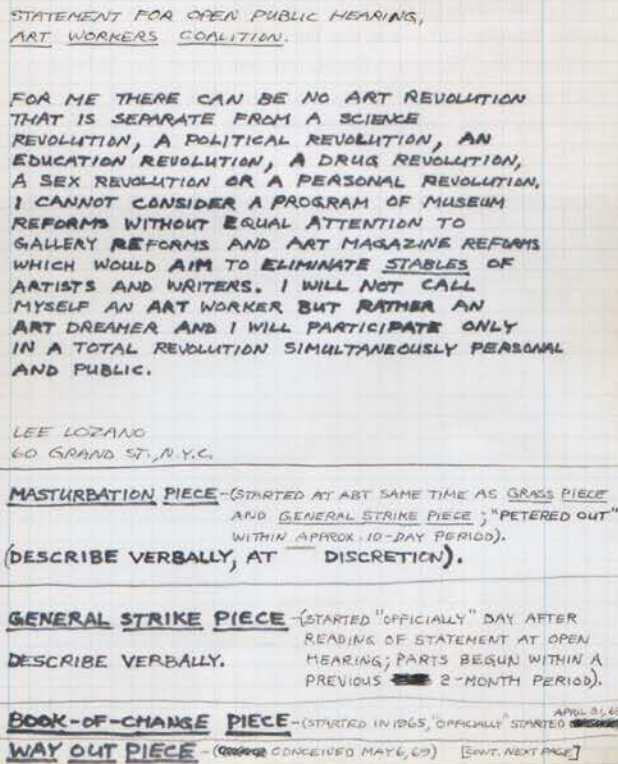 STATEMENT FOR OPEN PUBLIC HEARING,
ART WORKERS COALITION.
FOR ME THERE CAN BE NO ART REVOLUTION
THAT IS SEPARATE FROM A SCIENCE
REVOLUTION, A POLITICAL REVOLUTION, AN
EDUCATION REVOLUTION, A DRUG REVOLUTION,
A SEX REVOLUTION OR A PERSONAL REVOLUTION.
I CANNOT CONSIDER A PROGRAM OF MUSEUM
REFORMS WITHOUT EQUAL ATTENTION TO
GALLERY REFORMS AND ART MAGAZINE REFORMS
WHICH WOULD AIM TO ELIMINATE STABLES OF
ARTISTS AND WRITERS. I WILL NOT CALL
MYSELF AN ART WORKER BUT RATHER AN
ART DREAMER AND I WILL PARTICIPATE ONLY
IN A TOTAL REVOLUTION SIMULTANEOUSLY PERSONAL
AND PUBLIC.
LEE LOZANO
60 GRAND ST., N.Y.C.
MASTURBATION PIECE-(STARTED AT ABT SAME TIME AS GRASS PIECE
AND GENERAL STRIKE PIECE; "PETERED OUT"
WITHIN APPROX. 10-DAY PERIOD).
(DESCRIBE VERBALLY, AT DISCRETION).
GENERAL STRIKE PIECE-(STARTED "OFFICIALLY" DAY AFTER
READING OF STATEMENT AT OPEN
DESCRIBE VERBALLY. HEARING; PARTS BEGUN WITHIN A
PREVIOUS 2-MONTH PERIOD).
BOOK-OF-CHANGE PIECE-(STARTED IN 1965, "OFFICIALLY" STARTED APRIL
WAY OUT PIECE-(CONCEIVED MAY 6, 69) [CONT. NEXT PAGE]